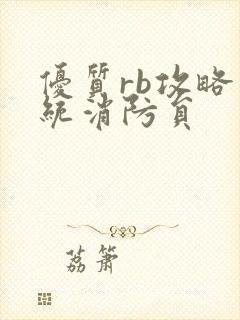 優質rb攻略
統消防員
荔簫